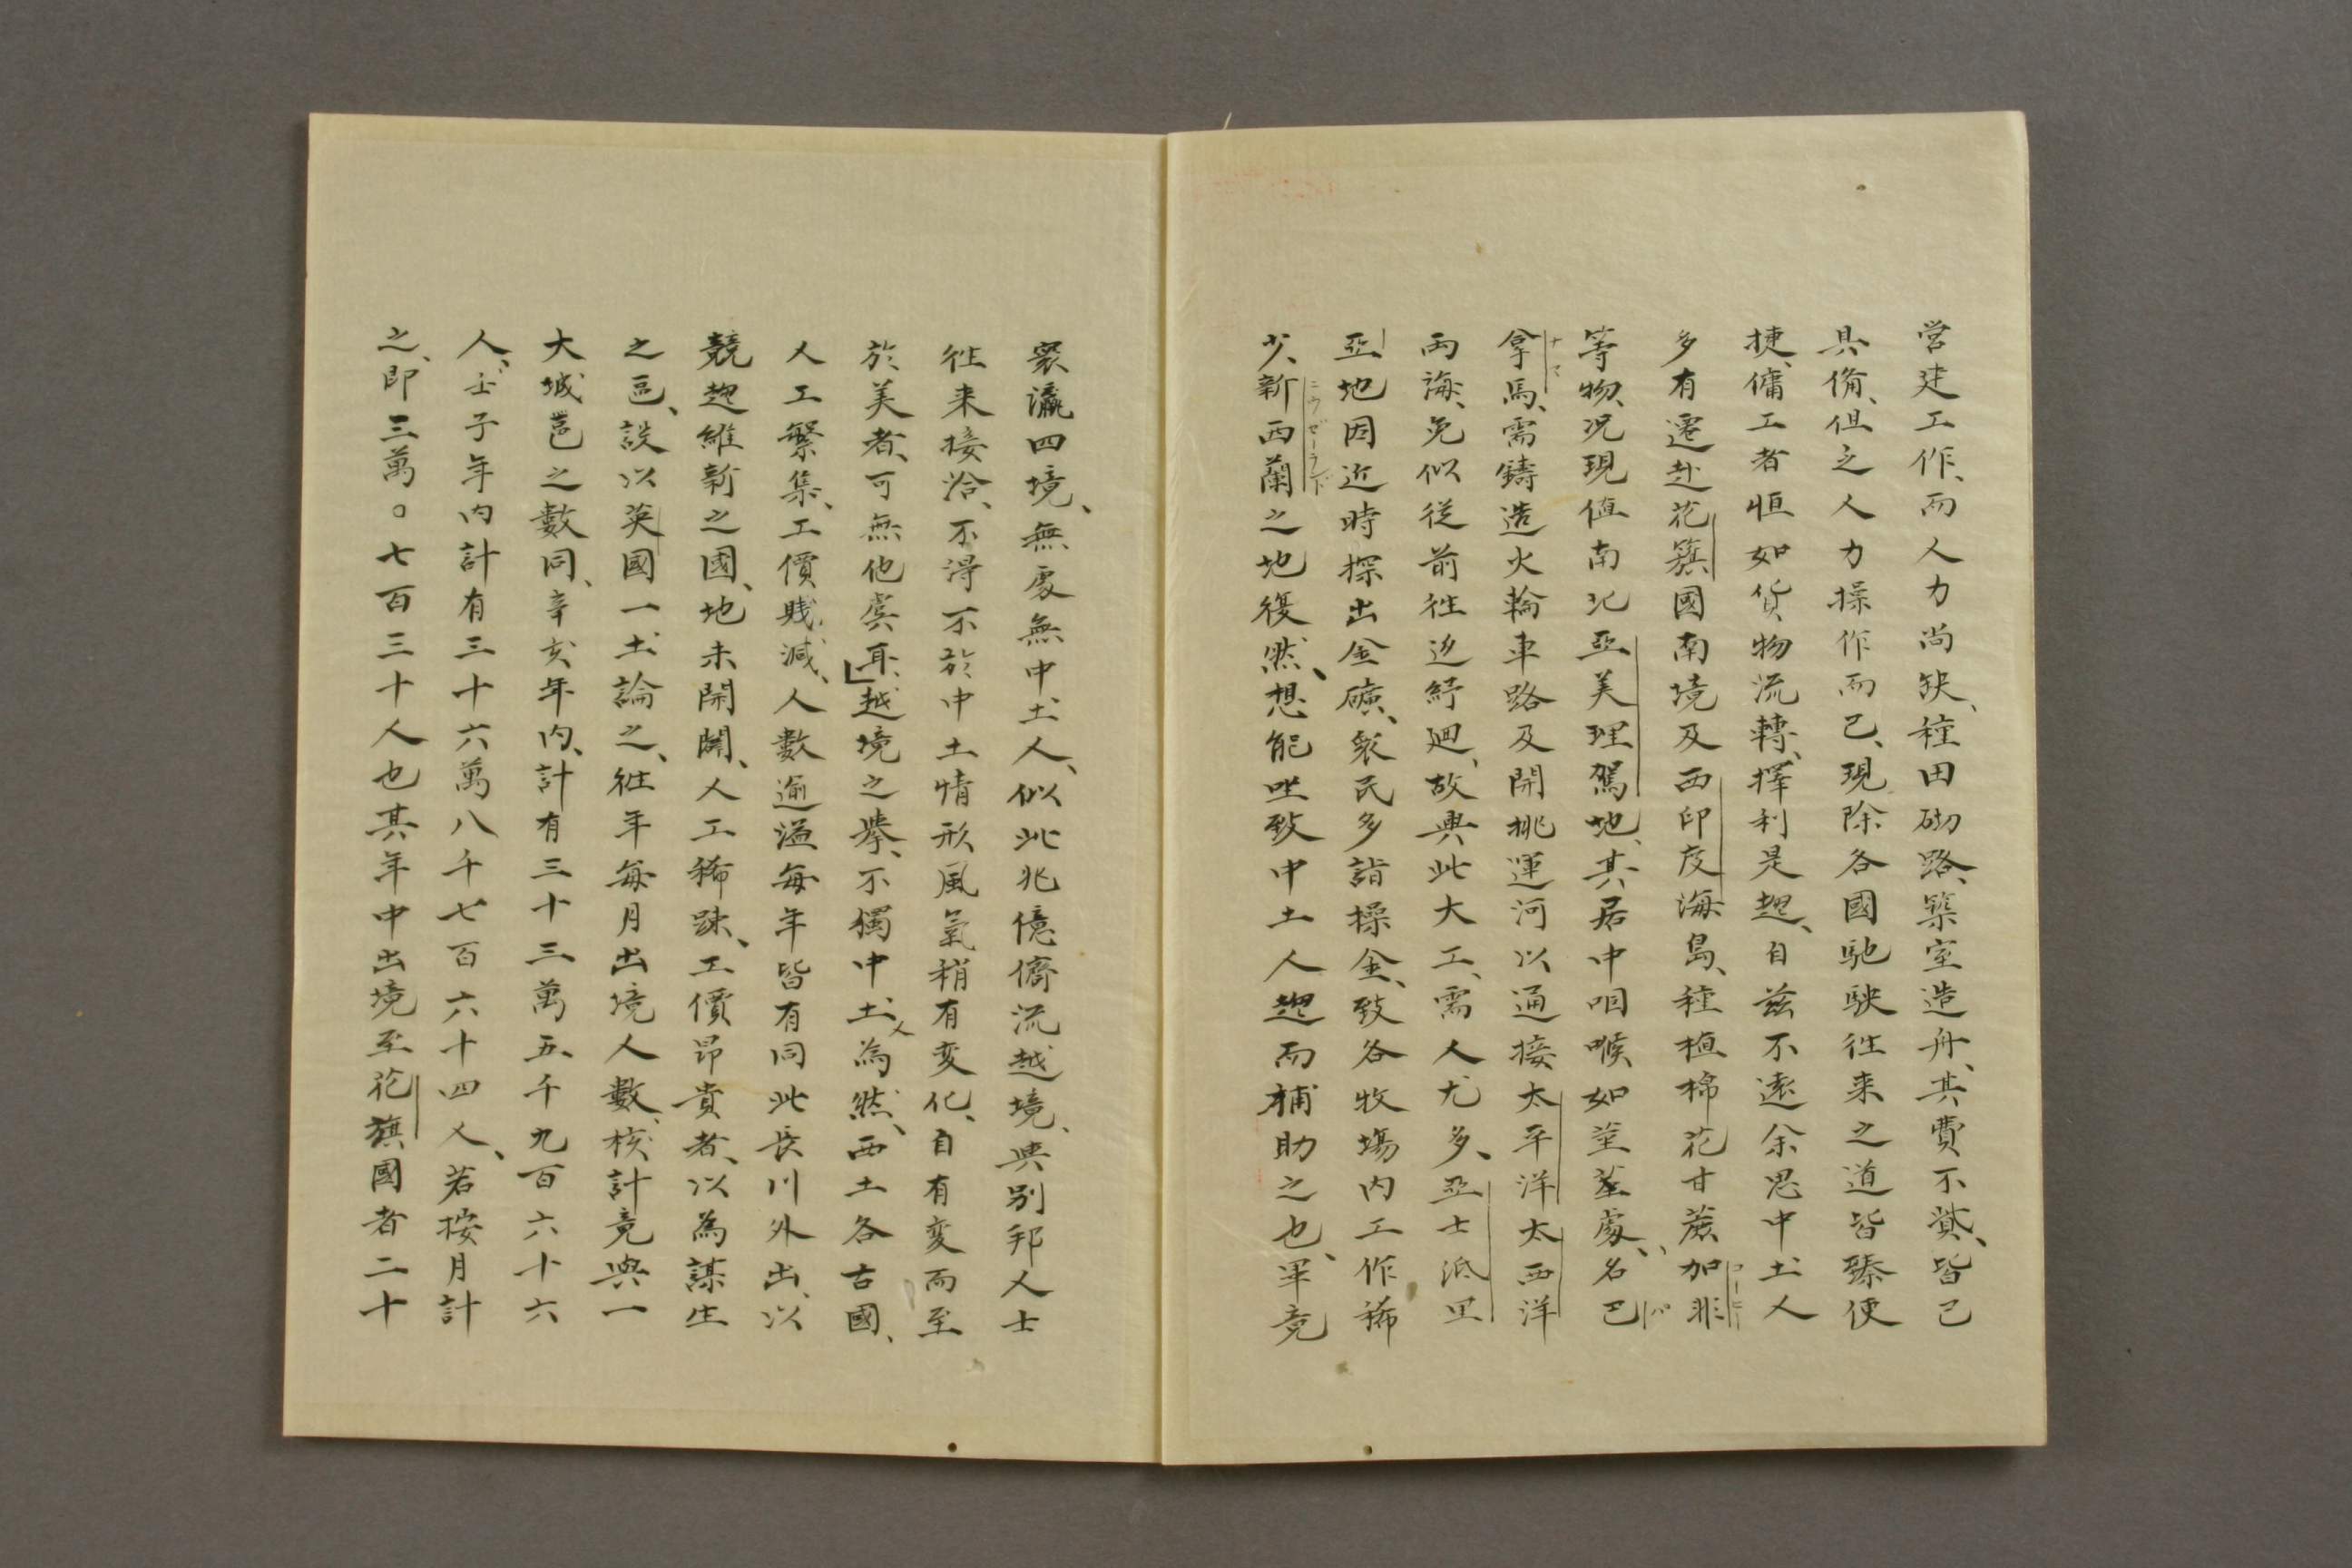 営建工作、而人力尚缺、種田砌路、築室造舟、其費不貲、皆已
具備、但乏人力操作而已、現除各國馳駛徃来之道皆臻便
捷、傭工者恒如貨物流轉、擇利是趨、自茲不遠余思中土人
多有遷赴花籏國南境及西印度海島、種植棉花甘蔗加非
等物、況現值南北亞美理駕地、其居中咽喉如荃蓋處、名巴
拿馬、需鑄造火輪車路及開挑運河以通接太平洋太西洋
両海、免似従前徃返紆廻、故興此大工、需人尤多、亞士派里
亞地因近時探出金礦、衆民多詣操金、致各牧場内工作稀
少、新西蘭之地復然、想能坐致中土人趨而補助之也、畢竟
寰瀛四境、無處無中土人、似此兆億儕流越境、與別邦人士
徃来接洽、不得不於中土情形風氣稍有変化、自有変而至
於美者、可無他虞耳、越境之擧、不獨中土人為然、西土各古國、
人工繁集、工價賤減、人數逾溢每年皆有同此長川外出、以
競趨維新之國、地未開闢、人工稀踈、工價昂貴者、以為謀生
之邑、設以英國一土論之、徃年每月出境人數、核計竟與一
大城邑之數同、辛亥年内、計有三十三萬五千九百六十六
人、壬子年内計有三十六萬八千七百六十四人、若按月計
之、即三萬〇七百三十人也其年中出境至花旗國者二十